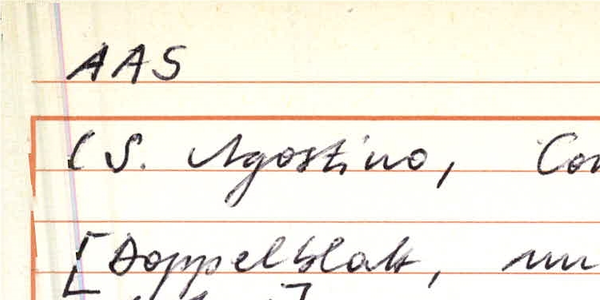 AAS
(S. Agostino, Con
[Doppelblatt,